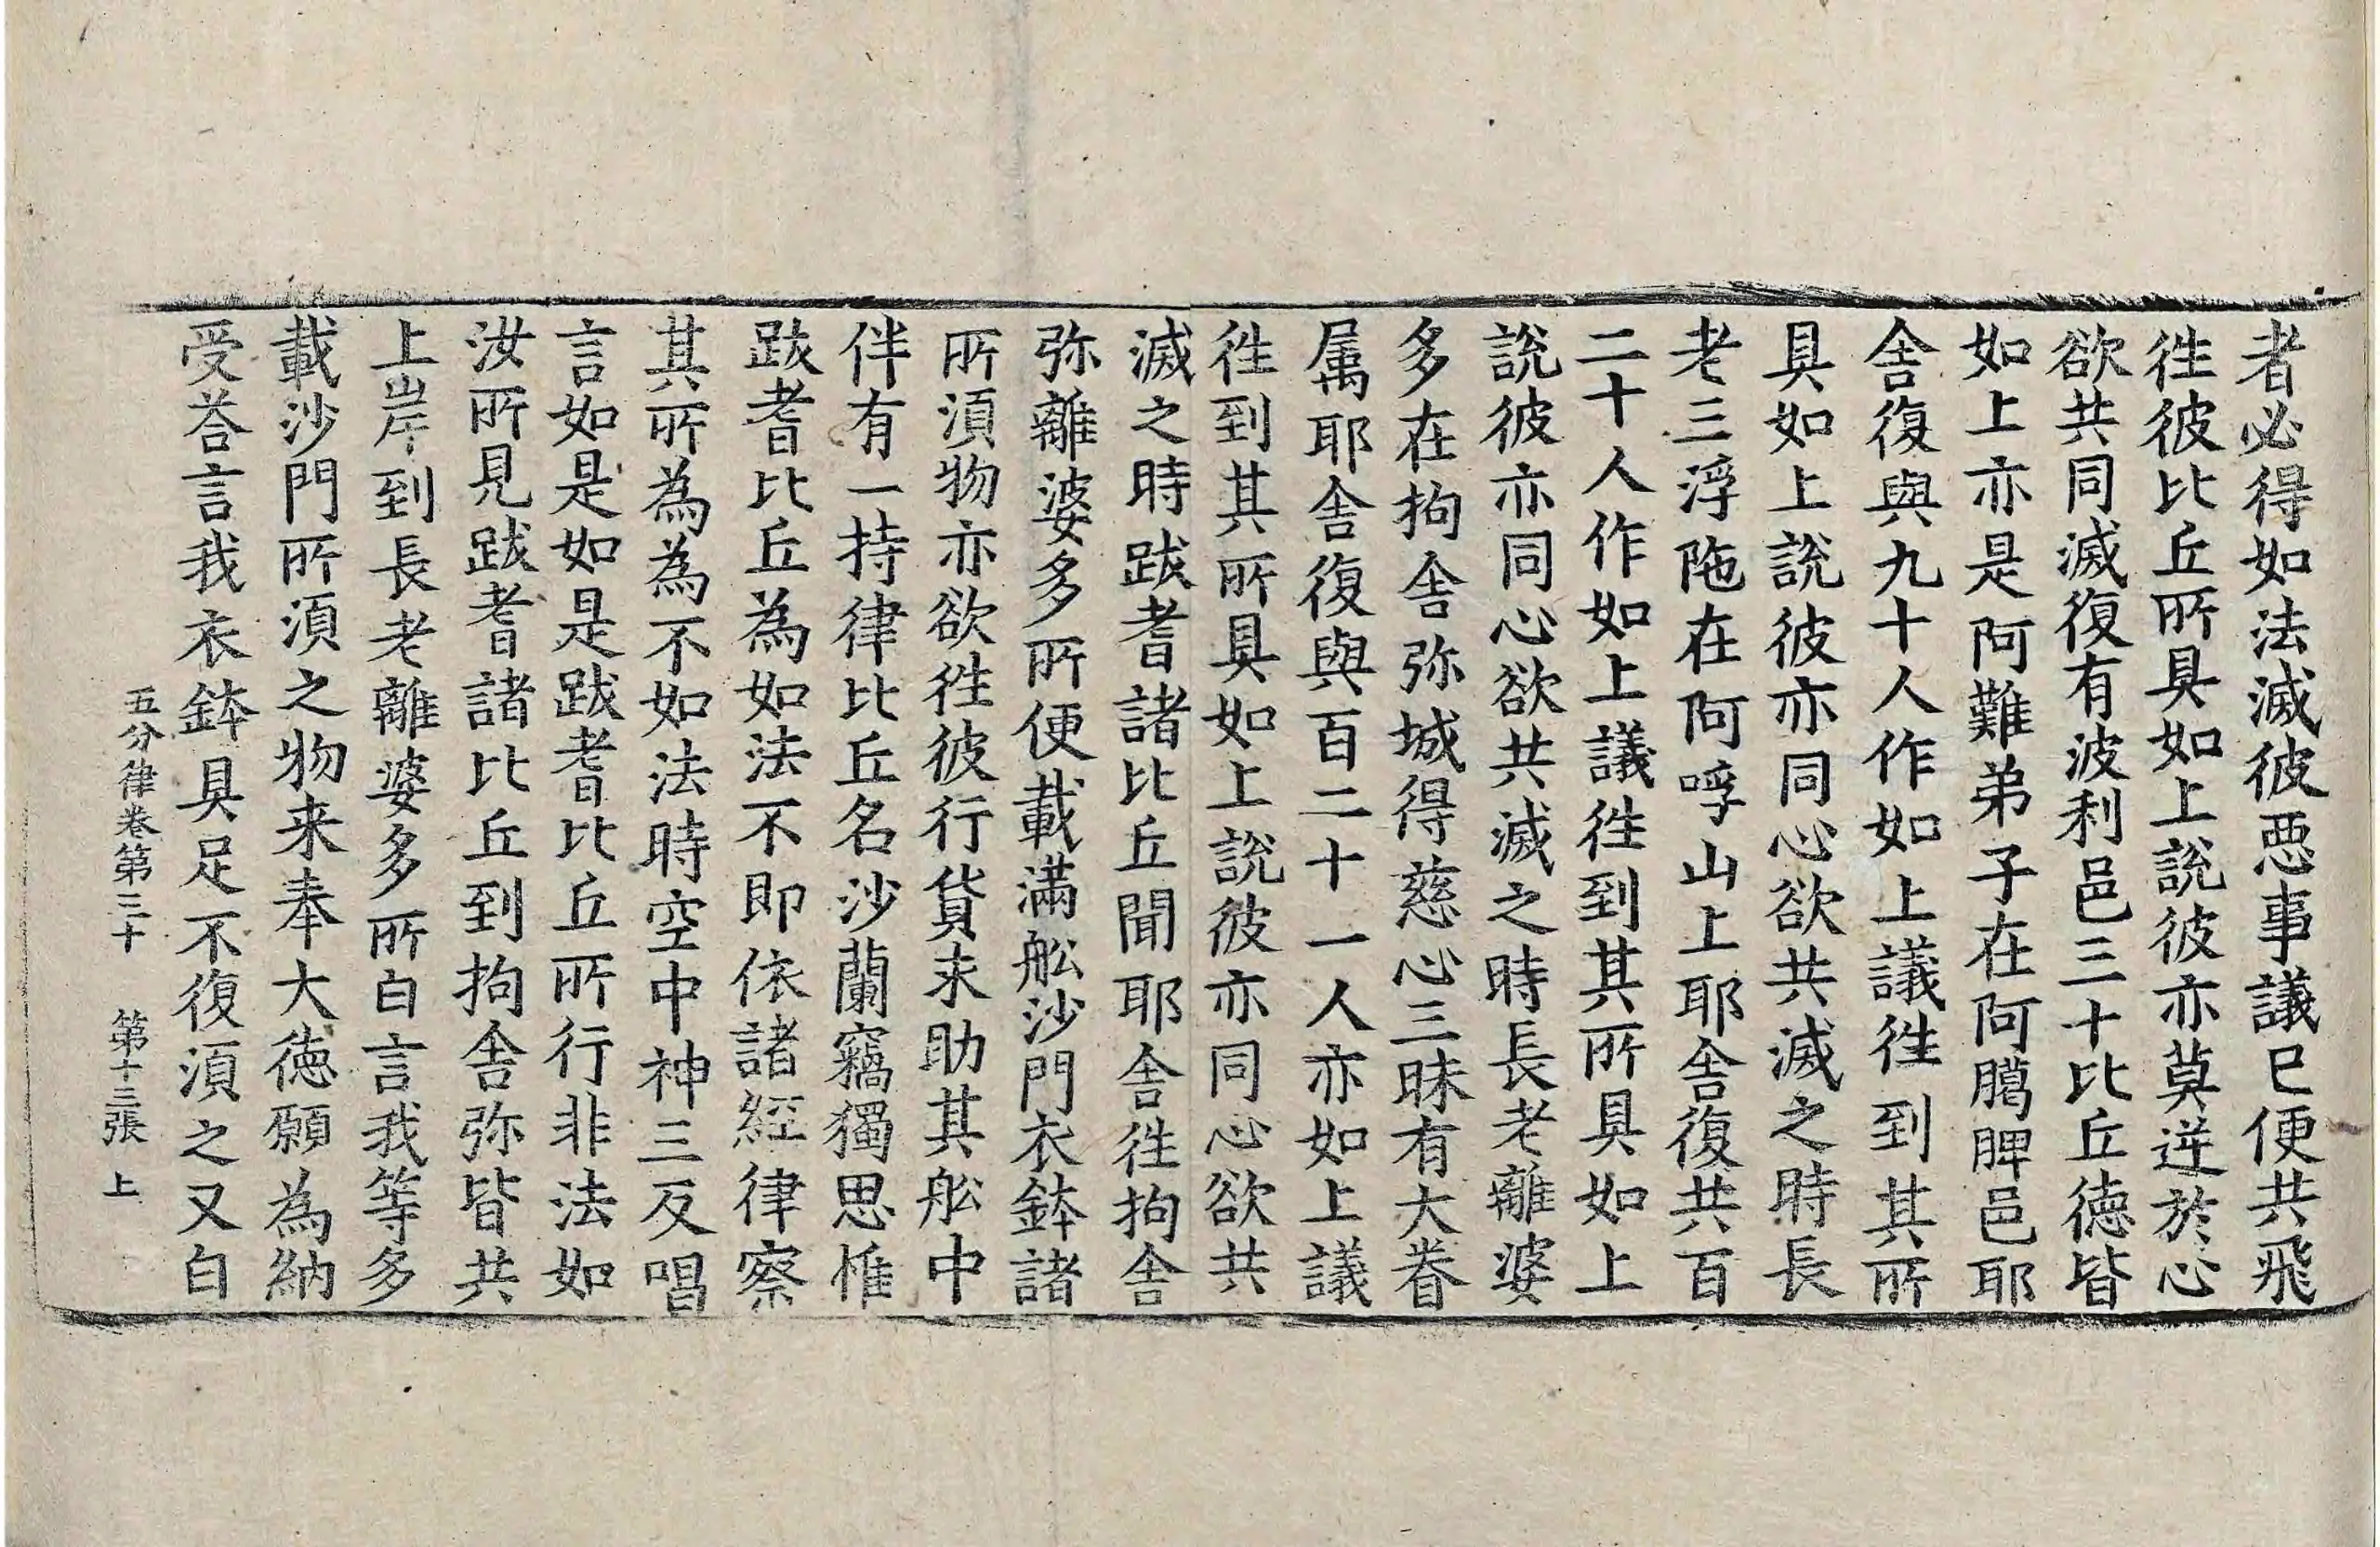 者必得如法滅彼惡事議已便共飛
徃彼比丘所具如上說彼亦莫逆於心
欲共同滅復有波利邑三十比丘德皆
如上亦是阿難弟子在阿臈脾邑耶
舍復與九十人作如上議徃到其所
具如上說彼亦同心欲共滅之時長
老三浮陁在阿呼山上耶舍復共百
二十人作如上議徃到其所具如上
說彼亦同心欲共滅之時長老離婆
多在拘舍弥城得慈心三昧有大眷
属耶舍復與百二十一人亦如上議
徃到其所具如上說彼亦同心欲共
滅之時跋耆諸比丘聞耶舍徃拘舍
弥離婆多所便載滿舩沙門衣鉢諸
所須物亦欲徃彼行貨求助其舩中
伴有一持律比丘名沙蘭竊獨思惟
跋耆比丘為如法不即依諸經律察
其所為為不如法時空中神三反唱
言如是如是跋耆比丘所行非法如
汝所見跋耆諸比丘到拘舍弥皆共
上岸到長老離婆多所白言我等多
載沙門所須之物来奉大德願為納
受荅言我衣鉢具足不復須之又白
五分律卷第三十　第十三張　上